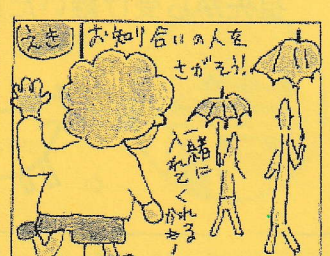 えき
お知り合いの人を
さがそう!
一緒に
入れてくれる
かも!